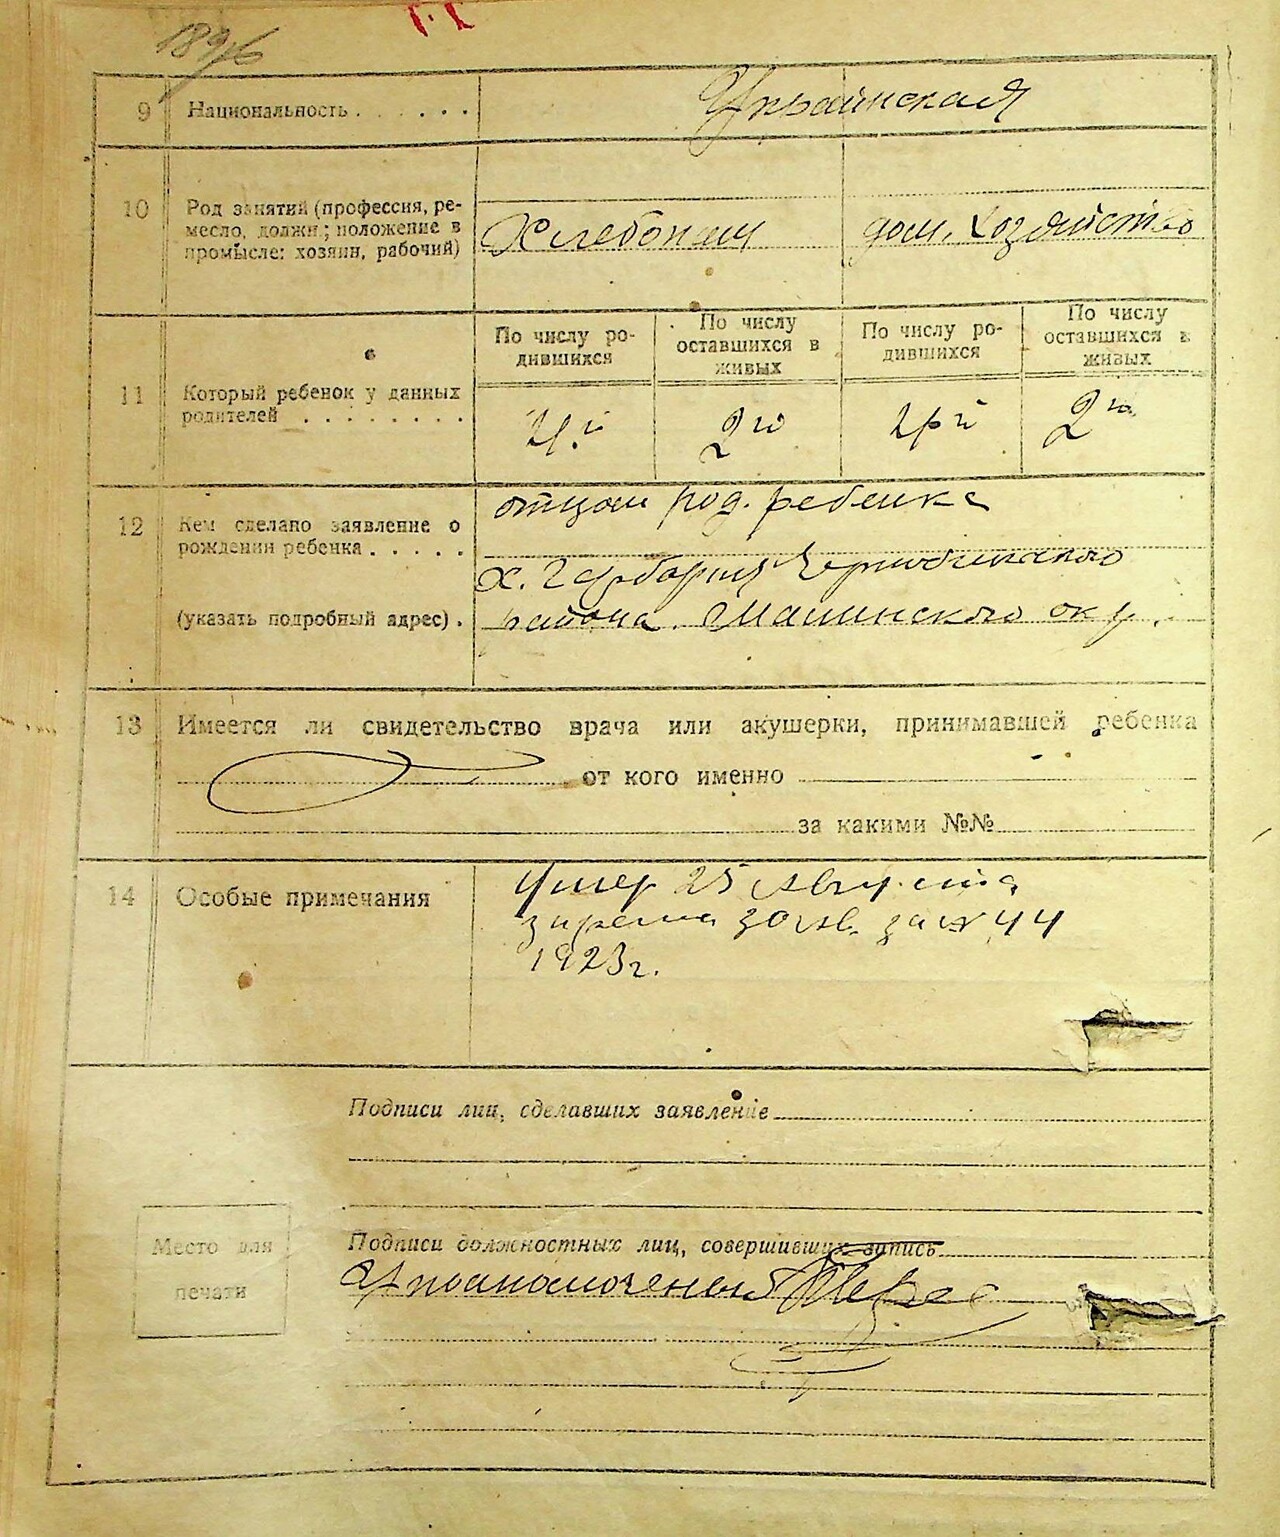 189
9 Национальность . . . . . . Украинская
10 Род занятий (профессия, ре-
месло, должн.; положение в
промысле: хозяин, рабочий)
Хлебопаш дом. хозяйство
По числу ро-
дившихся
По числу
оставшихся в
живых
По числу ро-
дившихся
По числу
оставшихся в
живых
11 Который ребенок у данных
родителей . . . . . . . .
4й 2й 4й 2й
12 Кем сделано заявление о
рождении ребенка . . . . .
отцом род. ребенка
(указать подробный адрес) .
х.
района окр.
13 Имеется ли свидетельство врача или акушерки, принимавшей ребенка
от кого именно
за какими №№
14 Особые примечания
Умер 25 августа
30 ав. за № 44
1923 г.
Подписи лиц, сделавших заявление
Место для
печати
Подписи должностных лиц, совершивших запись
Уполномоченый